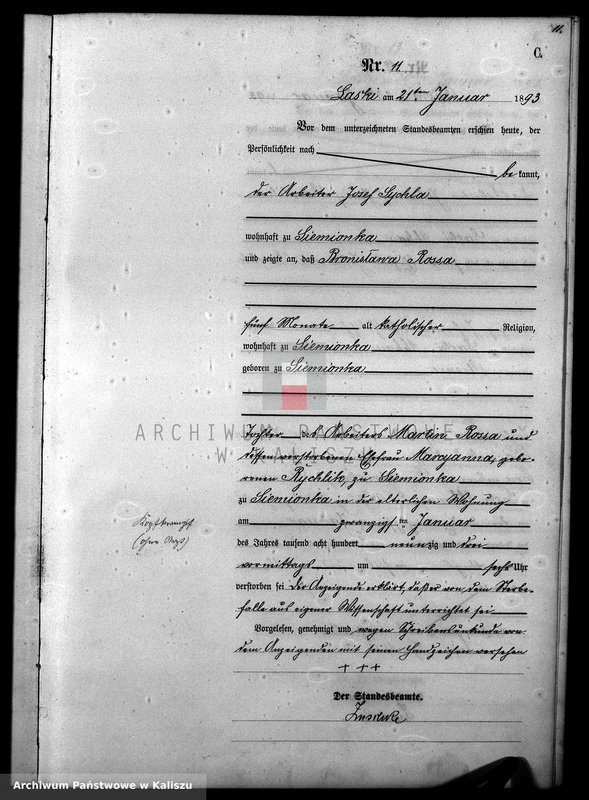 11.
C.
Nr. 11.
Laski am 21ten Januar 1893
Vor dem unterzeichneten Standesbeamten erschien heute, der
Persönlichkeit nach
be kannt,
der Arbeiter Josef Sychla
wohnhaft zu Siemionka
und zeigte an, daß Bronislawa Rossa
fünf Monate alt katholischer Religion,
wohnhaft zu Siemionka
geboren zu Siemionka
ARCHIWUM PAŃSTWOWE
W KALISZU
Tochter des Arbeiters Martin Rossa und
dessen verstorbenen Ehefrau Maryanna, gebo-
renen Rychlik, zu Siemionka
zu Siemionka in der elterlichen Wohnung
Kopfkrampf
(ohne Arzt)
am zwanzigsten Januar
des Jahres tausend acht hundert neunzig und drei
vormittags um sechs Uhr
verstorben sei Der Anzeigende erklärt, daß er von dem Sterbe-
falle aus eigener Wissenschaft unterrichtet sei
Vorgelesen, genehmigt und wegen Schreibensunkunde von
dem Anzeigenden mit seinen Handzeichen versehen
+ + +
Der Standesbeamte.
Archiwum Państwowe w Kaliszu